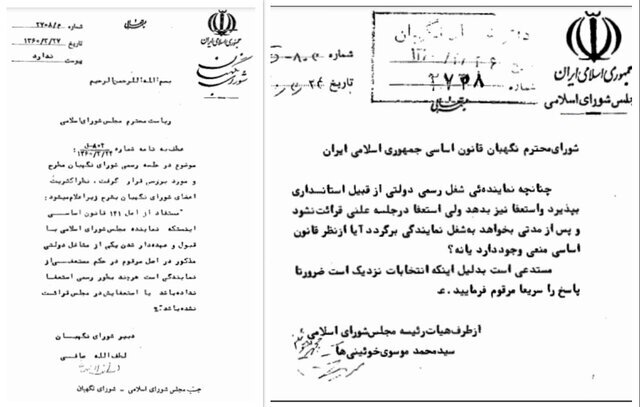 جمهوری اسلامی ایران
مجلس شورای اسلامی
شماره
تاریخ
۲۷۰۸
شماره
شورای محترم نگهبان قانون اساسی جمهوری اسلامی ایران
چنانچه نماینده‌ئی شغل رسمی دولتی از قبیل استانداری
بپذیرد واستعفا نیز بدهد ولی استعفا درجلسه علنی قرائت نشود
و پس از مدتی بخواهد به‌شغل نمایندگی برگردد آیا ازنظر قانون
اساسی منعی وجود دارد یانه؟
مستدعی است بدلیل اینکه انتخابات نزدیک است ضرورتا
پاسخ را سریعا مرقوم فرمایید.
ازطرف هیات رئیسه مجلس شورای اسلامی
سید محمد موسوی خوئینی‌ها
جمهوری اسلامی ایران
شورای نگهبان
شماره ۲۷۰۸/م
تاریخ ۱۳۶۰/۳/۲۷
پیوست ندارد
بسم الله الرحمن الرحیم
ریاست محترم مجلس شورای اسلامی
عطف به نامه شماره
موضوع در جلسه رسمی شورای نگهبان مطرح
و مورد بررسی قرار گرفت، نظر اکثریت
اعضای شورای نگهبان بشرح زیر اعلام میشود:
"مستفاد از اصل ۱۴۱ قانون اساسی
اینستکه نماینده مجلس شورای اسلامی با
قبول و عهده‌دار شدن یکی از مشاغل دولتی
مذکور در اصل مرقوم در حکم مستعفی از
نمایندگی است هرچند بطور رسمی استعفا
نداده باشد یا استعفایش در مجلس قرائت
نشده باشد"
دبیر شورای نگهبان
لطف الله صافی
مجلس شورای اسلامی - شورای نگهبان